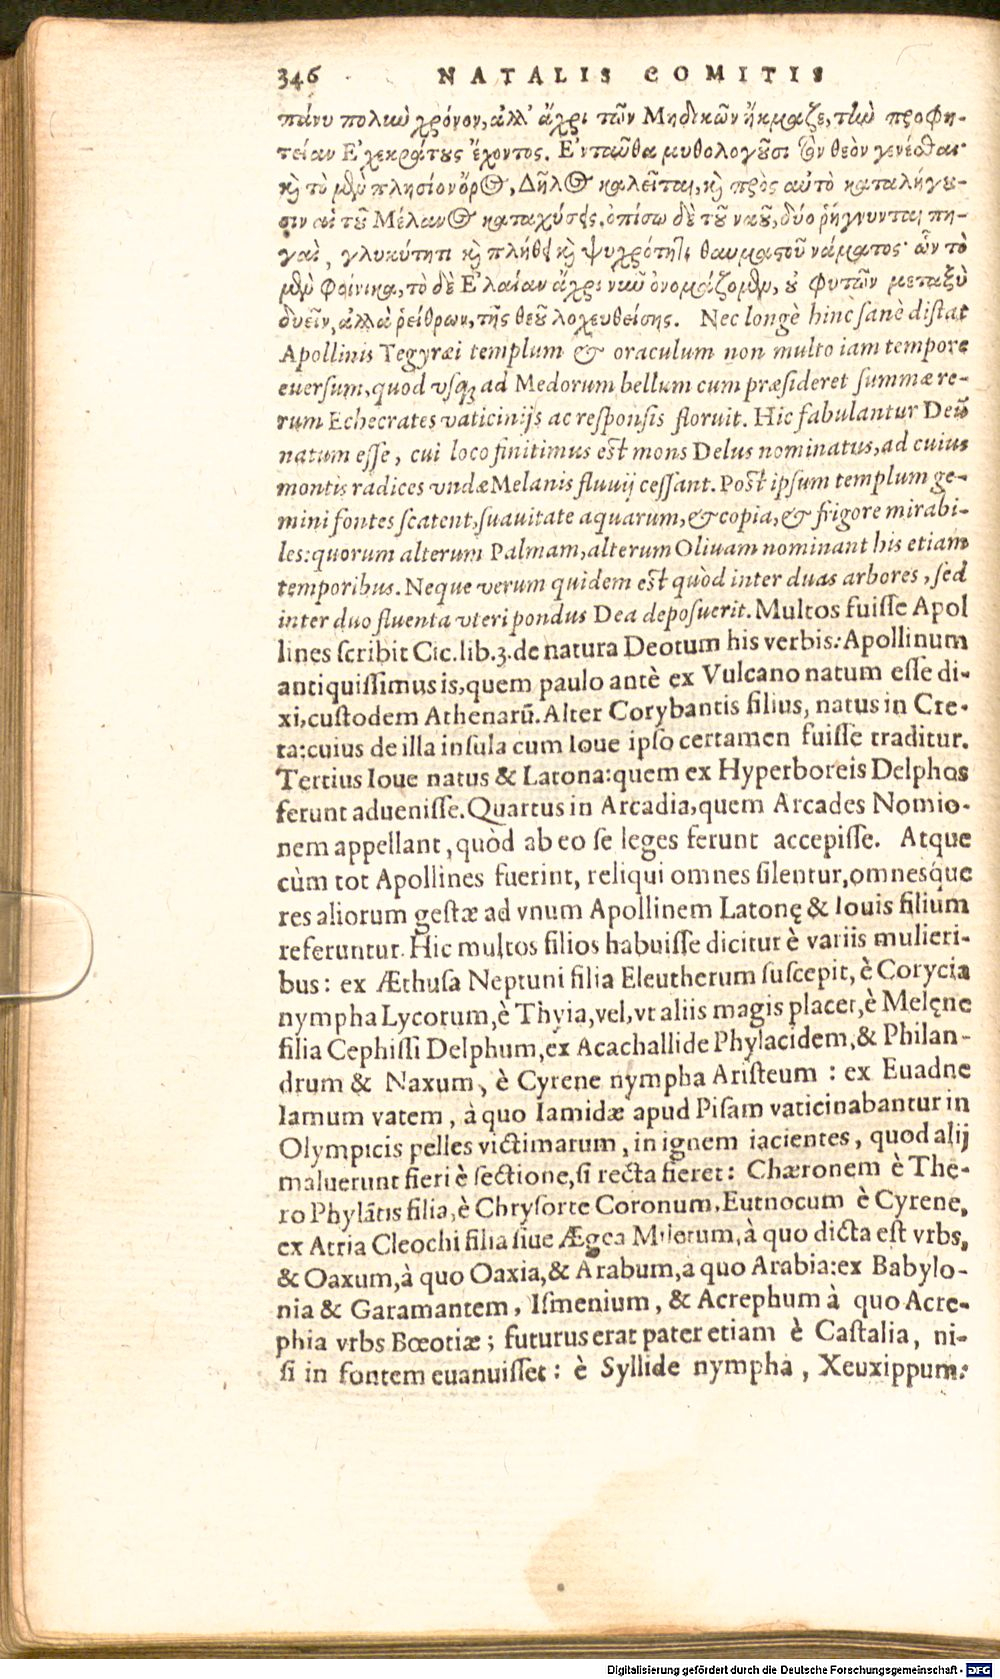 346 NATALIS COMITIS
πάνυ πολιὼ χρόνον, ἀλλ' ἄχρι τῶν Μηδικῶν ἤκμαζε, τίω προφη-
τείαν Ἐχεκράτους ἔχοντος. Ἐνταῦθα μυθολογοῦσι τὸν θεὸν γενέσθαι·
κỳ τὸ μὲν πλησίον ὄρος, Δῆλος καλεῖται, κỳ πρὸς αὐτὸ καταλήγου-
σιν αἱ τοῦ Μέλανος καταχύσεις. ὀπίσω δὲ τοῦ ναοῦ, δύο ῥήγνυνται πη-
γαὶ, γλυκύτητι κỳ πλήθει κỳ ψυχρότητι θαυμαστοῦ νάματος· ὧν τὸ
μὲν Φοίνικα, τὸ δὲ Ἐλαίαν ἄχρι νιῶ ὀνομάζομεν, οὐ φυτῶν μεταξὺ
δυεῖν, ἀλλὰ ῥείθρων, τῆς θεοῦ λοχευθείσης. Nec longè hinc sanè distat
Apollinis Tegyræi templum & oraculum non multo iam tempore
euersum, quod vsq; ad Medorum bellum cum præsideret summæ re-
rum Echecrates vaticinijs ac responsis floruit. Hic fabulantur Deū
natum esse, cui loco finitimus est mons Delus nominatus, ad cuius
montis radices vndæ Melanis fluuij cessant. Post ipsum templum ge-
mini fontes scatent, suauitate aquarum, & copia, & frigore mirabi-
les: quorum alterum Palmam, alterum Oliuam nominant his etiam
temporibus. Neque verum quidem est quòd inter duas arbores, sed
inter duo fluenta vteri pondus Dea deposuerit. Multos fuisse Apol
lines scribit Cic. lib. 3. de natura Deorum his verbis: Apollinum
antiquissimus is, quem paulo antè ex Vulcano natum esse di-
xi, custodem Athenarū. Alter Corybantis filius, natus in Cre-
ta: cuius de illa insula cum Ioue ipso certamen fuisse traditur.
Tertius Ioue natus & Latona: quem ex Hyperboreis Delphos
ferunt aduenisse. Quartus in Arcadia, quem Arcades Nomio-
nem appellant, quòd ab eo se leges ferunt accepisse. Atque
cùm tot Apollines fuerint, reliqui omnes silentur, omnesque
res aliorum gestæ ad vnum Apollinem Latonę & Iouis filium
referuntur. Hic multos filios habuisse dicitur è variis mulieri-
bus: ex Æthusa Neptuni filia Eleutherum suscepit, è Corycia
nympha Lycorum, è Thyia, vel, vt aliis magis placet, è Melęne
filia Cephissi Delphum, ex Acachallide Phylacidem, & Philan-
drum & Naxum, è Cyrene nympha Aristeum: ex Euadne
Iamum vatem, à quo Iamidæ apud Pisam vaticinabantur in
Olympicis pelles victimarum, in ignem iacientes, quod alij
maluerunt fieri è sectione, si recta fieret: Chæronem è The-
ro Phylātis filia, è Chrysorte Coronum, Eutnocum è Cyrene,
ex Atria Cleochi filia siue Ægea Miletum, à quo dicta est vrbs,
& Oaxum, à quo Oaxia, & Arabum, à quo Arabia: ex Babylo-
nia & Garamantem, Ismenium, & Acrephum à quo Acre-
phia vrbs Bœotiæ; futurus erat pater etiam è Castalia, ni-
si in fontem euanuisset: è Syllide nympha, Xeuxippum:
Digitalisierung gefördert durch die Deutsche Forschungsgemeinschaft - DFG